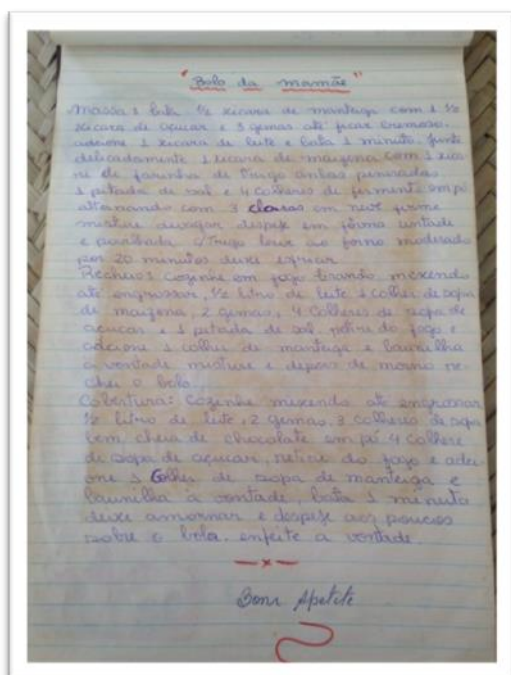 "Bolo da mamãe"
Massa: bata ½ xicara de manteiga com 1 ½
xicara de açucar e 3 gemas até ficar cremoso.
adcione 1 xicara de leite e bata 1 minuto, junte
delicadamente 1 xicara de maizena com 1 xica-
ra de farinha de trigo ambas peneiradas
1 pitada de sal e 4 colheres de fermento em pó
alternando com 3 claras em neve firme
misture devagar despeje em fôrma untada
e polvilhada c/trigo leve ao forno moderado
por 20 minutos deixe esfriar
Recheio: Cozinhe em fogo brando mexendo
até engrossar, ½ litro de leite 1 colher de sopa
de maizena, 2 gemas, 4 colheres de sopa de
açucar e 1 pitada de sal retire do fogo e
adcione 1 colher de manteiga e baunilha
a vontade misture e depois de morno re-
cheie o bolo.
Cobertura: Cozinhe mexendo até engrossar
½ litro de leite, 2 gemas, 3 colheres de sopa
bem cheia de chocolate em pó 4 colhere
de sopa de açucar, retire do fogo e adci-
one 1 Colher de sopa de manteiga e
baunilha a vontade, bata 1 minuto
deixe amornar e despeje aos poucos
sobre o bolo. enfeite a vontade.
—x—
Bom Apetite